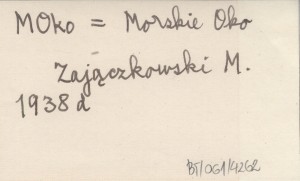 MOko = Morskie Oko
Zajączkowski M.
1938 d
BT/OG1/4262